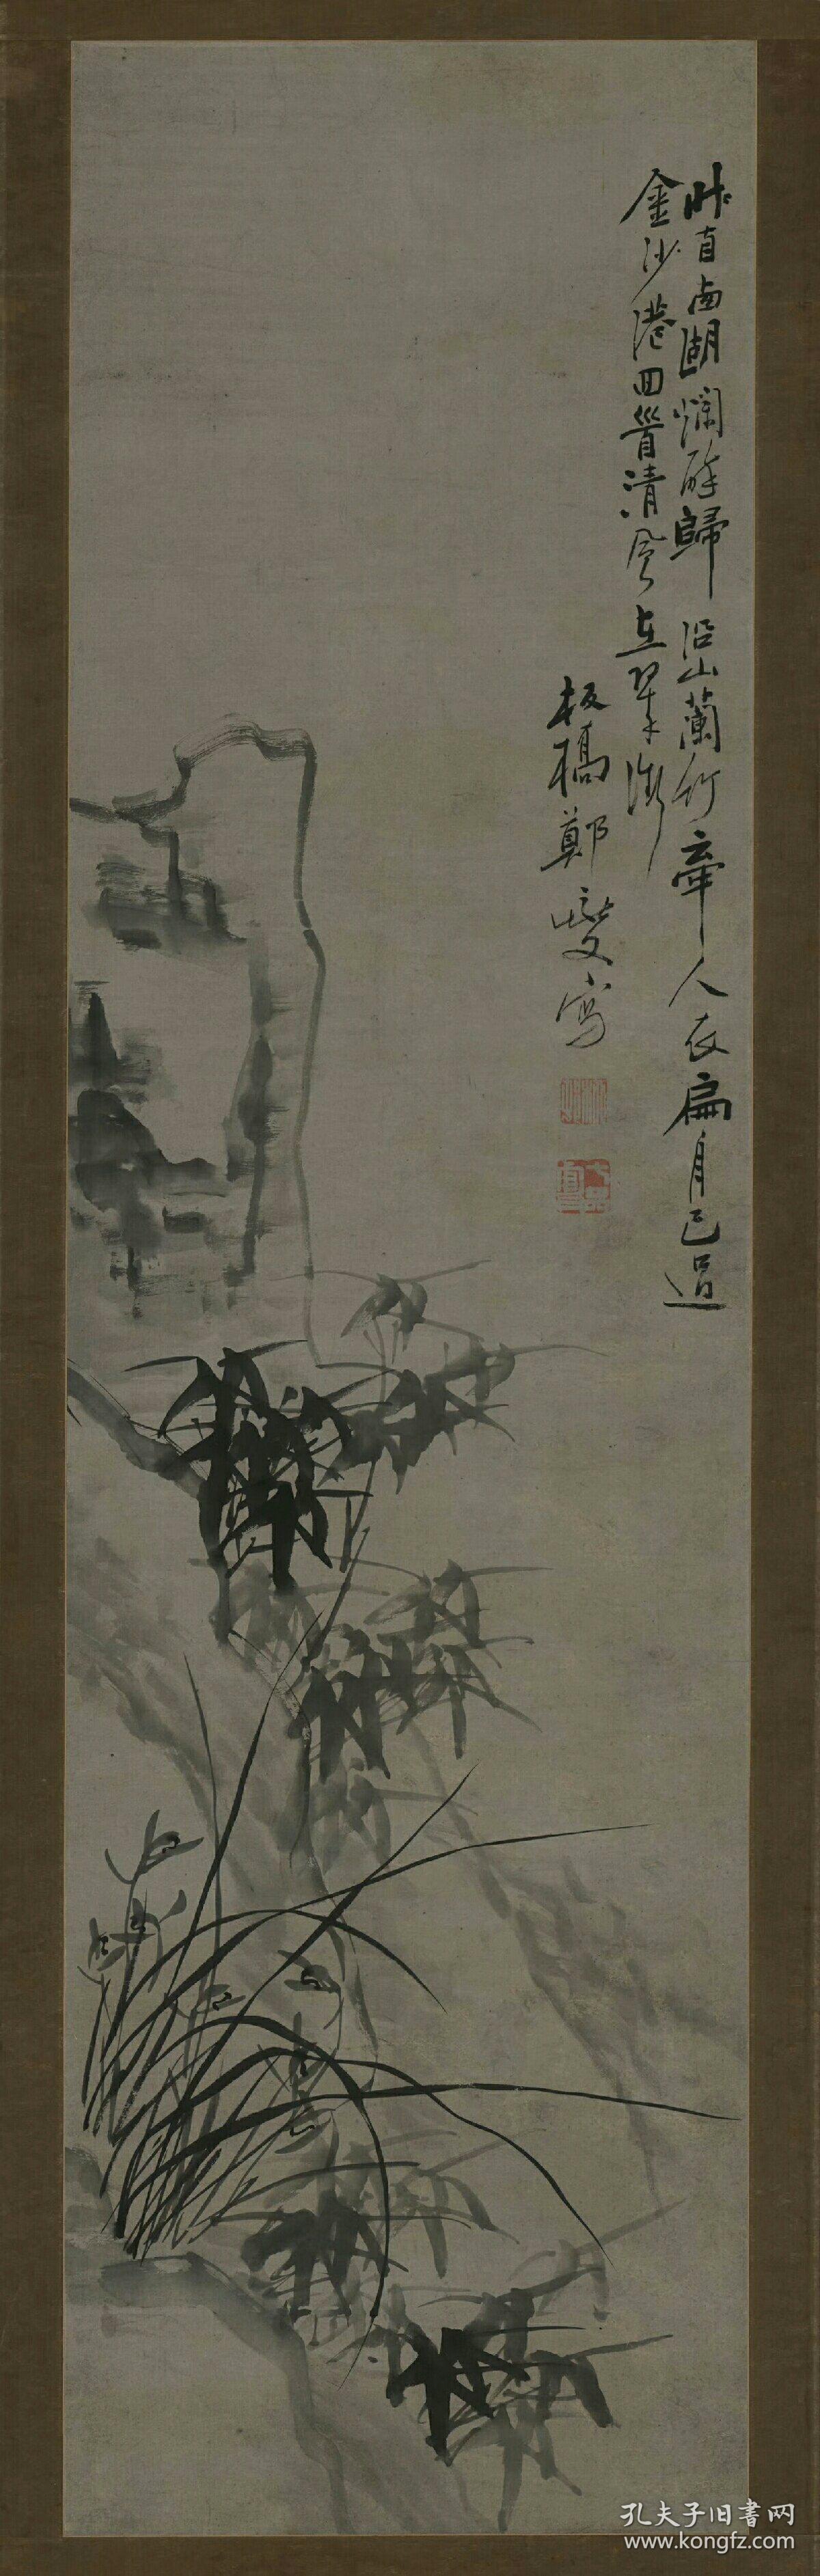 昨自南湖爛醉歸沿山蘭竹牽人衣扁舟已過
金沙港回首清風在翠微
板橋鄭燮寫
七品官耳
孔夫子旧書网
www.kongfz.com